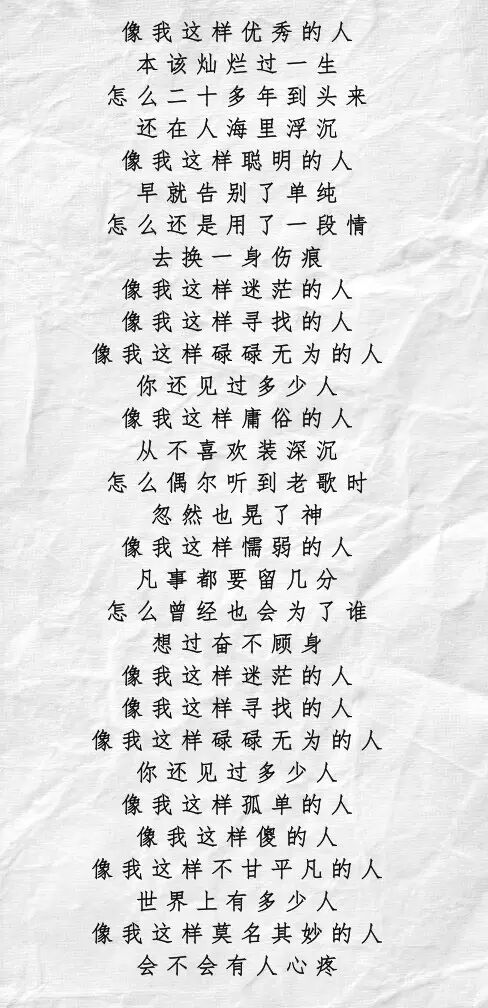 像我这样优秀的人
本该灿烂过一生
怎么二十多年到头来
还在人海里浮沉
像我这样聪明的人
早就告别了单纯
怎么还是用了一段情
去换一身伤痕
像我这样迷茫的人
像我这样寻找的人
像我这样碌碌无为的人
你还见过多少人
像我这样庸俗的人
从不喜欢装深沉
怎么偶尔听到老歌时
忽然也晃了神
像我这样懦弱的人
凡事都要留几分
怎么曾经也会为了谁
想过奋不顾身
像我这样迷茫的人
像我这样寻找的人
像我这样碌碌无为的人
你还见过多少人
像我这样孤单的人
像我这样傻的人
像我这样不甘平凡的人
世界上有多少人
像我这样莫名其妙的人
会不会有人心疼